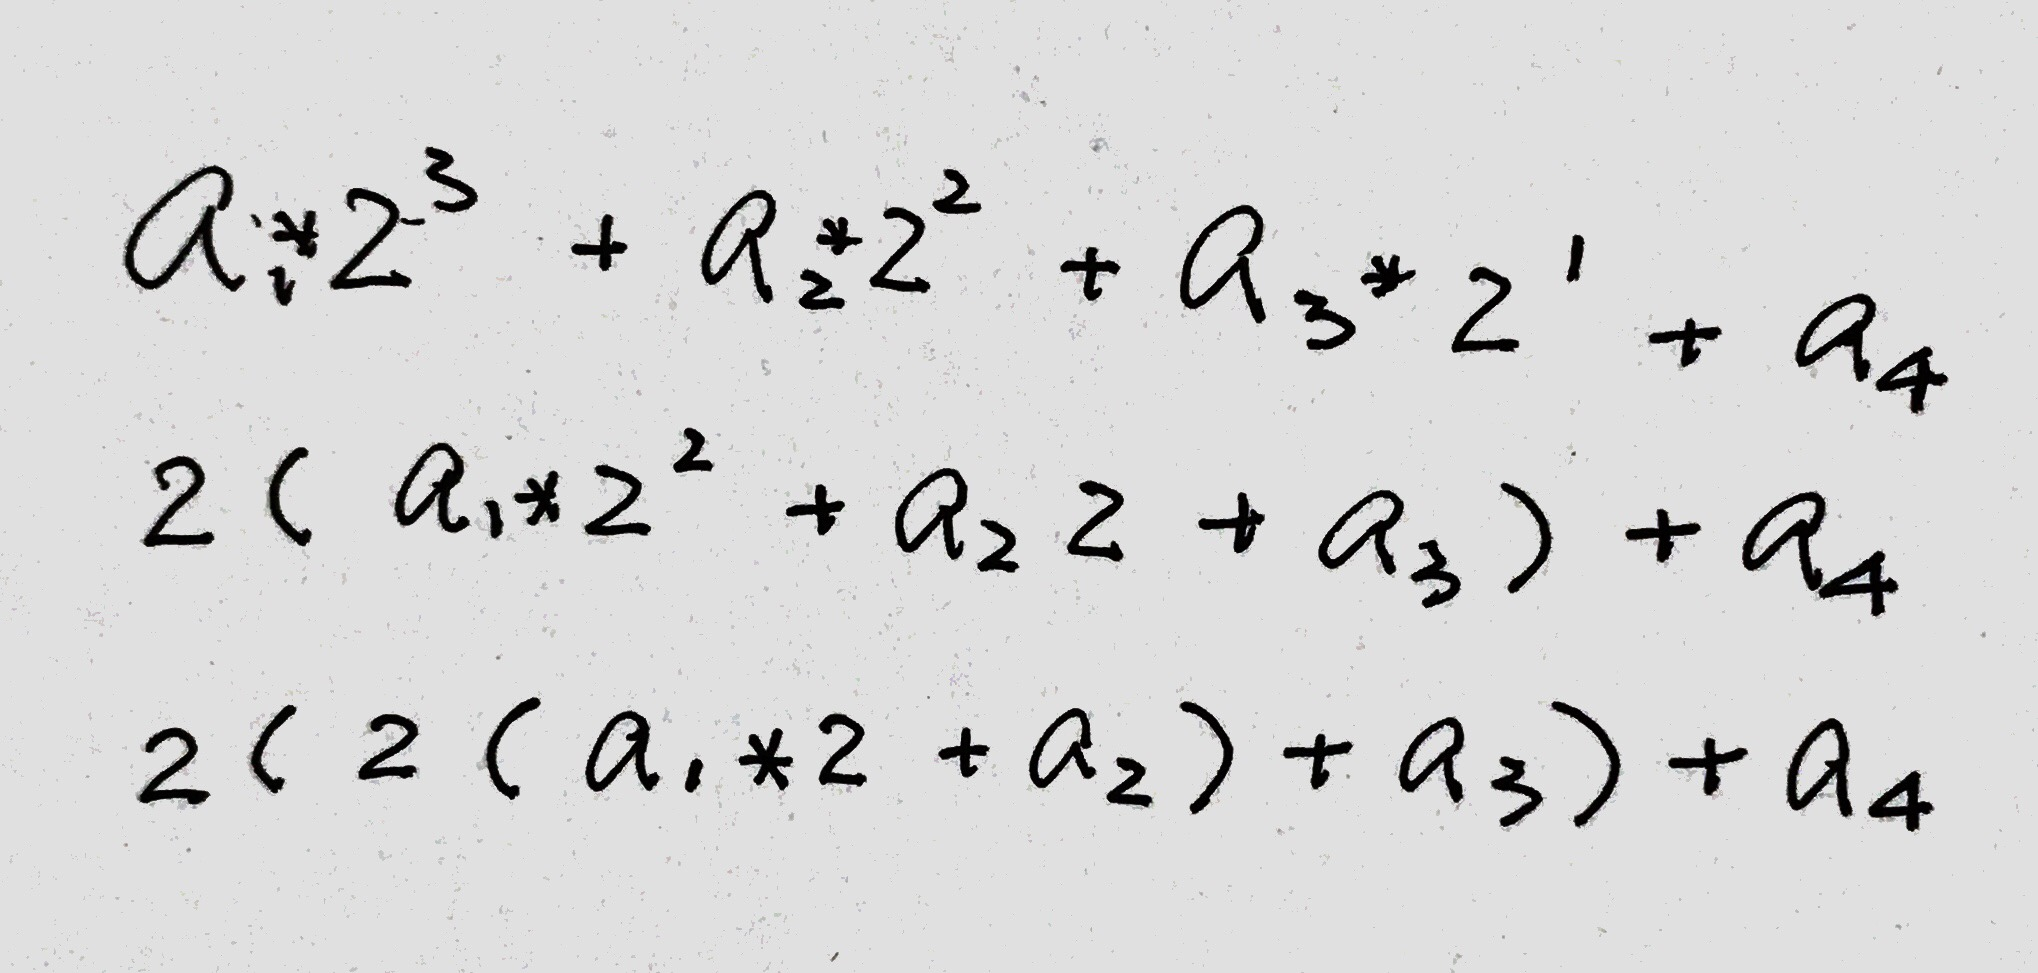 a₁*2³ + a₂*2² + a₃*2¹ + a₄
2(a₁*2² + a₂2 + a₃) + a₄
2(2(a₁*2 + a₂) + a₃) + a₄